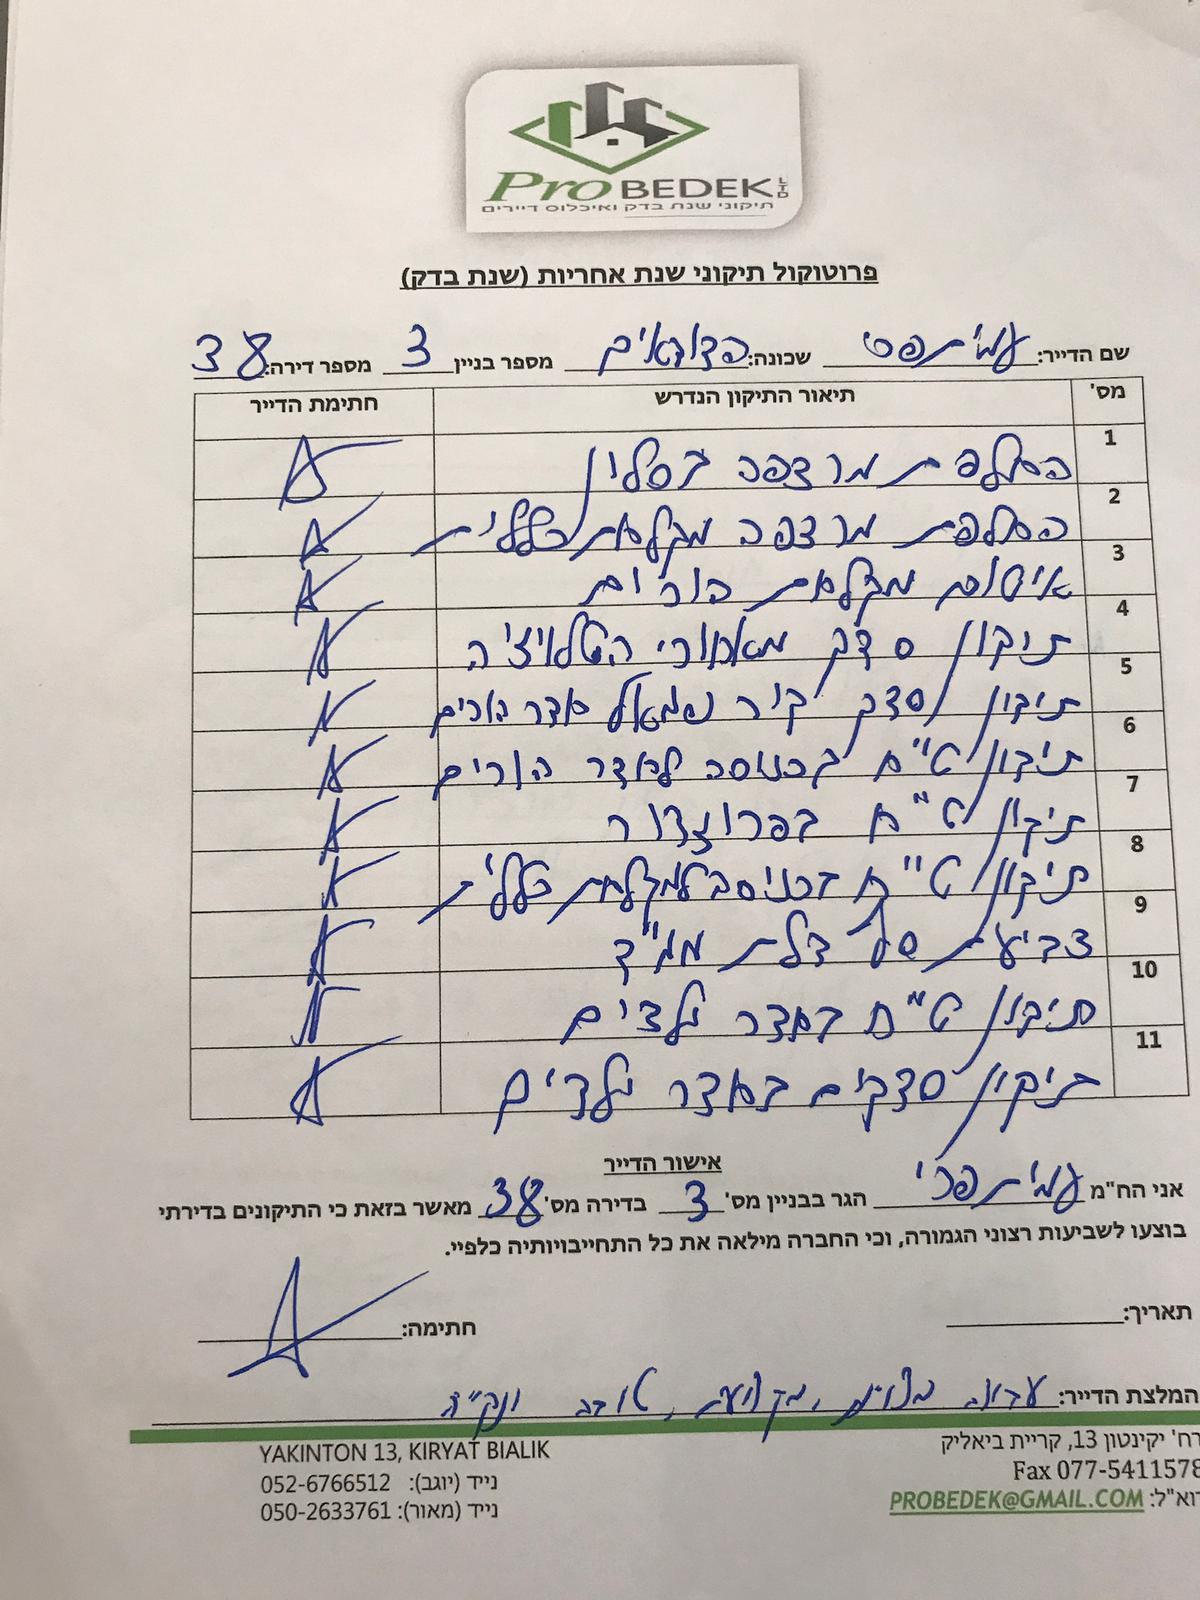 Pro BEDEK LTD
תיקוני שנת בדק ואיכלוס דיירים
פרוטוקול תיקוני שנת אחריות (שנת בדק)
שם הדייר: עמית שכונה: הדודאים מספר בניין 3 מספר דירה:
מס' תיאור התיקון הנדרש חתימת הדייר
1 החלפת מרצפה בסלון
2 החלפת מרצפה מקלחת כללית
3 איטום מקלחת הורים
4 תיקון סדק מאחורי הטלויזיה
5 תיקון סדק קיר שמאל חדר הורים
6 תיקון ט"ח בכניסה לחדר הורים
7 תיקון ט"ח בפרוזדור
8 תיקון ט"ח בכניסה למקלחת כללית
9 צביעת של דלת ממ"ד
10 תיקון ט"ח בחדר ילדים
11 תיקון סדקים בחדר ילדים
אישור הדייר
אני הח"מ עמית הגר בבניין מס' 3 בדירה מס' מאשר בזאת כי התיקונים בדירתי
בוצעו לשביעות רצוני הגמורה, וכי החברה מילאה את כל התחייבויותיה כלפיי.
תאריך: חתימה:
המלצת הדייר: עבודה מצוינת, מקצועית, טובה ונקייה
רח' יקינטון 13, קריית ביאליק YAKINTON 13, KIRYAT BIALIK
Fax 077-5411578 נייד (יוגב): 052-6766512
דוא"ל: PROBEDEK@GMAIL.COM נייד (מאור): 050-2633761